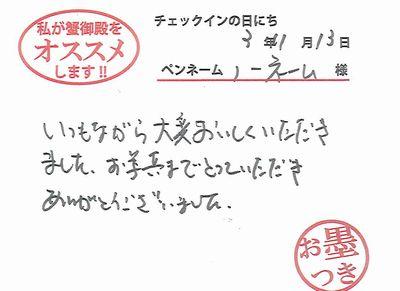 私が蟹御殿を
オススメ
します!!
チェックインの日にち
3 年 11 月 13 日
ペンネーム ノーネーム 様
いつもながら大変おいしくいただき
ました、お写真までとっていただき
ありがとうございました。
お墨
つき